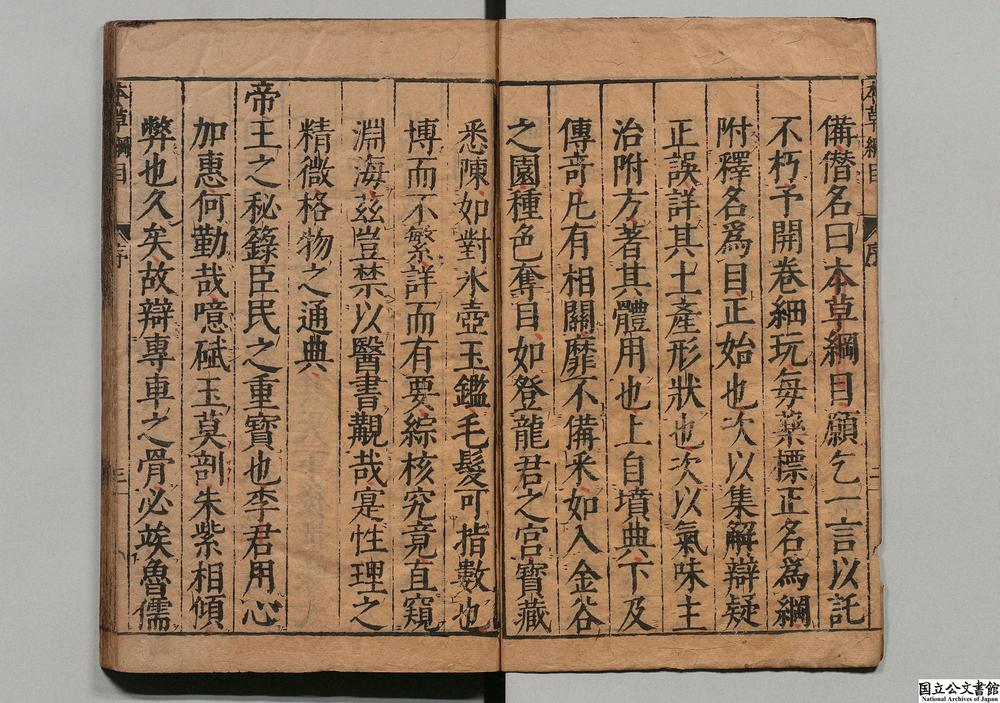 備僭名曰本草綱目願乞一言以託
不朽予開卷細玩每藥標正名爲綱
附釋名爲目正始也次以集解辯疑
正誤詳其土產形狀也次以氣味主
治附方著其體用也上自墳典下及
傳奇凡有相關靡不備釆如入金谷
之園種色奪目如登龍君之宮寶藏
悉陳如對氷壺玉鑑毛髮可指數也
博而不繁詳而有要綜核究竟直窺
淵海茲豈禁以醫書觀哉寔性理之
精微格物之通典
帝王之秘籙臣民之重寶也李君用心
加惠何勤哉噫碔玉莫剖朱紫相傾
弊也久矣故辯專車之骨必竢魯儒
本草綱目
序
二
本草綱目
序
三
国立公文書館
National Archives of Japan